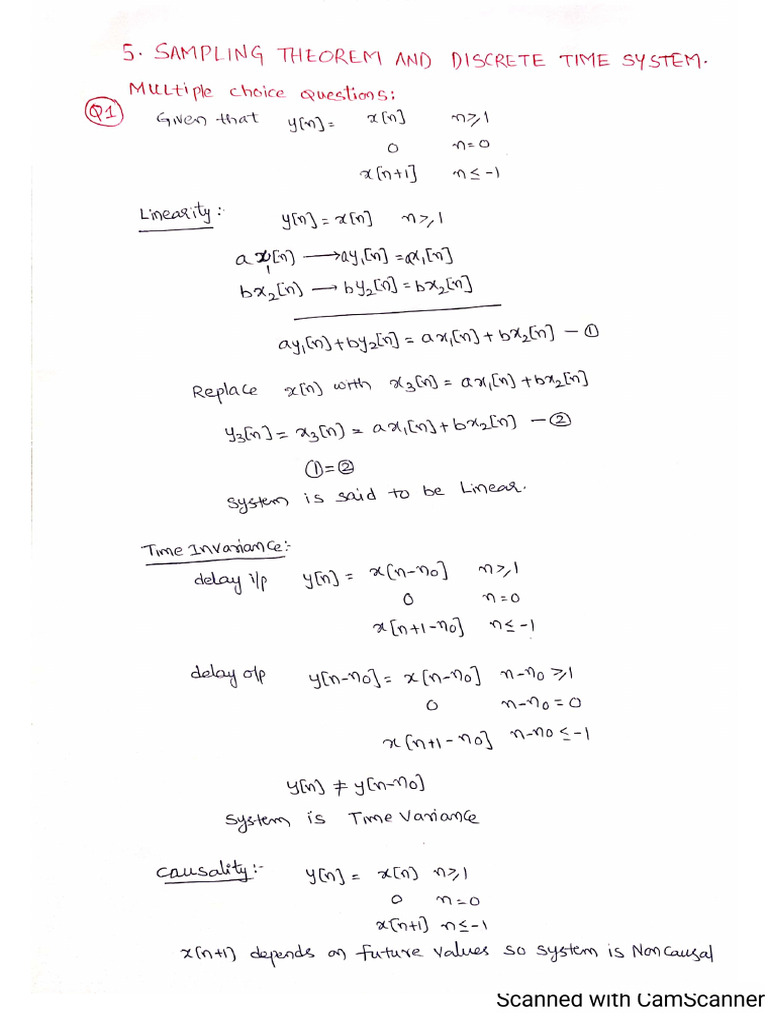 5. SAMPLING THEOREM AND DISCRETE TIME SYSTEM.
Multiple choice questions:
Q1 Given that y[n] = x[n] n≥1
0 n=0
x[n+1] n≤-1
Linearity:
y[n] = x[n] n≥1
a x₁[n) → ay₁[n] = ax₁[n]
bx₂[n) → by₂[n] = bx₂[n]
ay₁[n] + by₂[n] = ax₁[n] + bx₂[n] — ①
Replace x[n) with x₃[n] = ax₁[n] + bx₂[n]
y₃[n] = x₃[n] = ax₁[n] + bx₂[n] — ②
① = ②
System is said to be Linear.
Time Invariance:-
delay i/p y[n] = x[n-n₀] n≥1
0 n=0
x[n+1-n₀] n≤-1
delay o/p y[n-n₀] = x[n-n₀] n-n₀≥1
0 n-n₀=0
x[n+1-n₀] n-n₀≤-1
y[n] ≠ y[n-n₀]
System is Time Variance
Causality:- y[n] = x[n) n≥1
0 n=0
x[n+1) n≤-1
x[n+1) depends on future values so system is Non Causal
Scanned with CamScanner